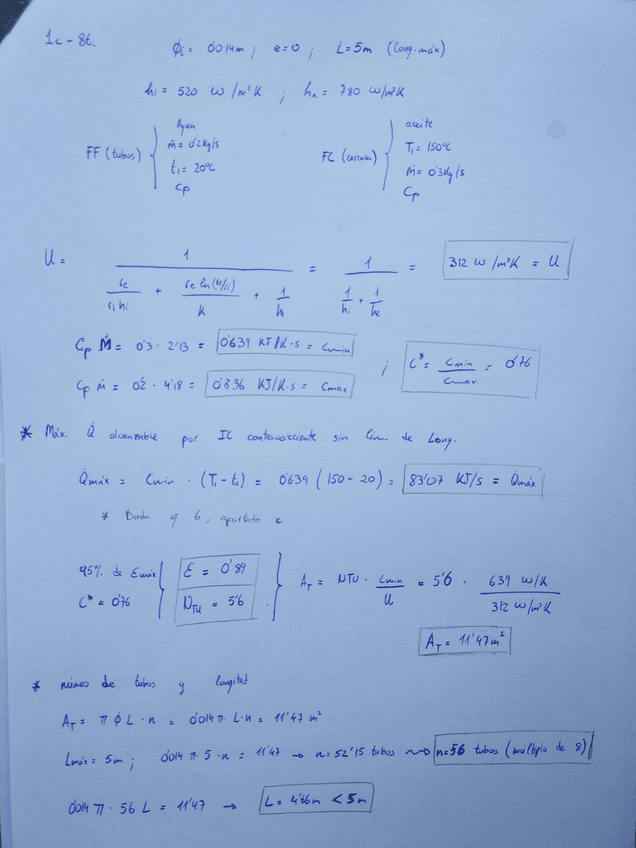 1c - 8t.
ϕi = 0'014m ; e=0 ; L=5m (long. máx)
hi = 520 W/m²K ; he = 780 W/m²K
FF (tubos) { Agua
ṁ = 0'2 kg/s
t₁ = 20ºC
Cp
FC (carcasa) { aceite
T₁ = 150ºC
Ṁ = 0'3 kg/s
Cp
U = 1 / (re/(ri hi) + re ln(re/ri)/k + 1/he) = 1 / (1/hi + 1/he) = 312 W/m²K = U
Cp Ṁ = 0'3 · 2'13 = 0'639 KJ/K·s = Cmin
Cp ṁ = 0'2 · 4'18 = 0'836 KJ/K·s = Cmax ; C* = Cmin/Cmax = 0'76
* Máx. Q̇ alcanzable por IC contracorriente sin lim de Long.
Q̇máx = Cmin · (T₁ - t₁) = 0'639 (150 - 20) = 83'07 KJ/s = Q̇máx
* Duda ej 6, apartado c
95% de Emáx
C* = 0'76 } E = 0'89
NTU = 5'6 } AT = NTU · Cmin/U = 5'6 · 639 W/K / 312 W/m²K
AT = 11'47 m²
* número de tubos y longitud
AT = π ϕ L · n = 0'014 π · L · n = 11'47 m²
Lmáx = 5m ; 0'014 π · 5 · n = 11'47 → n = 52'15 tubos ⇝ n=56 tubos (múltiplo de 8)
0'014 π · 56 L = 11'47 → L = 4'66m < 5m